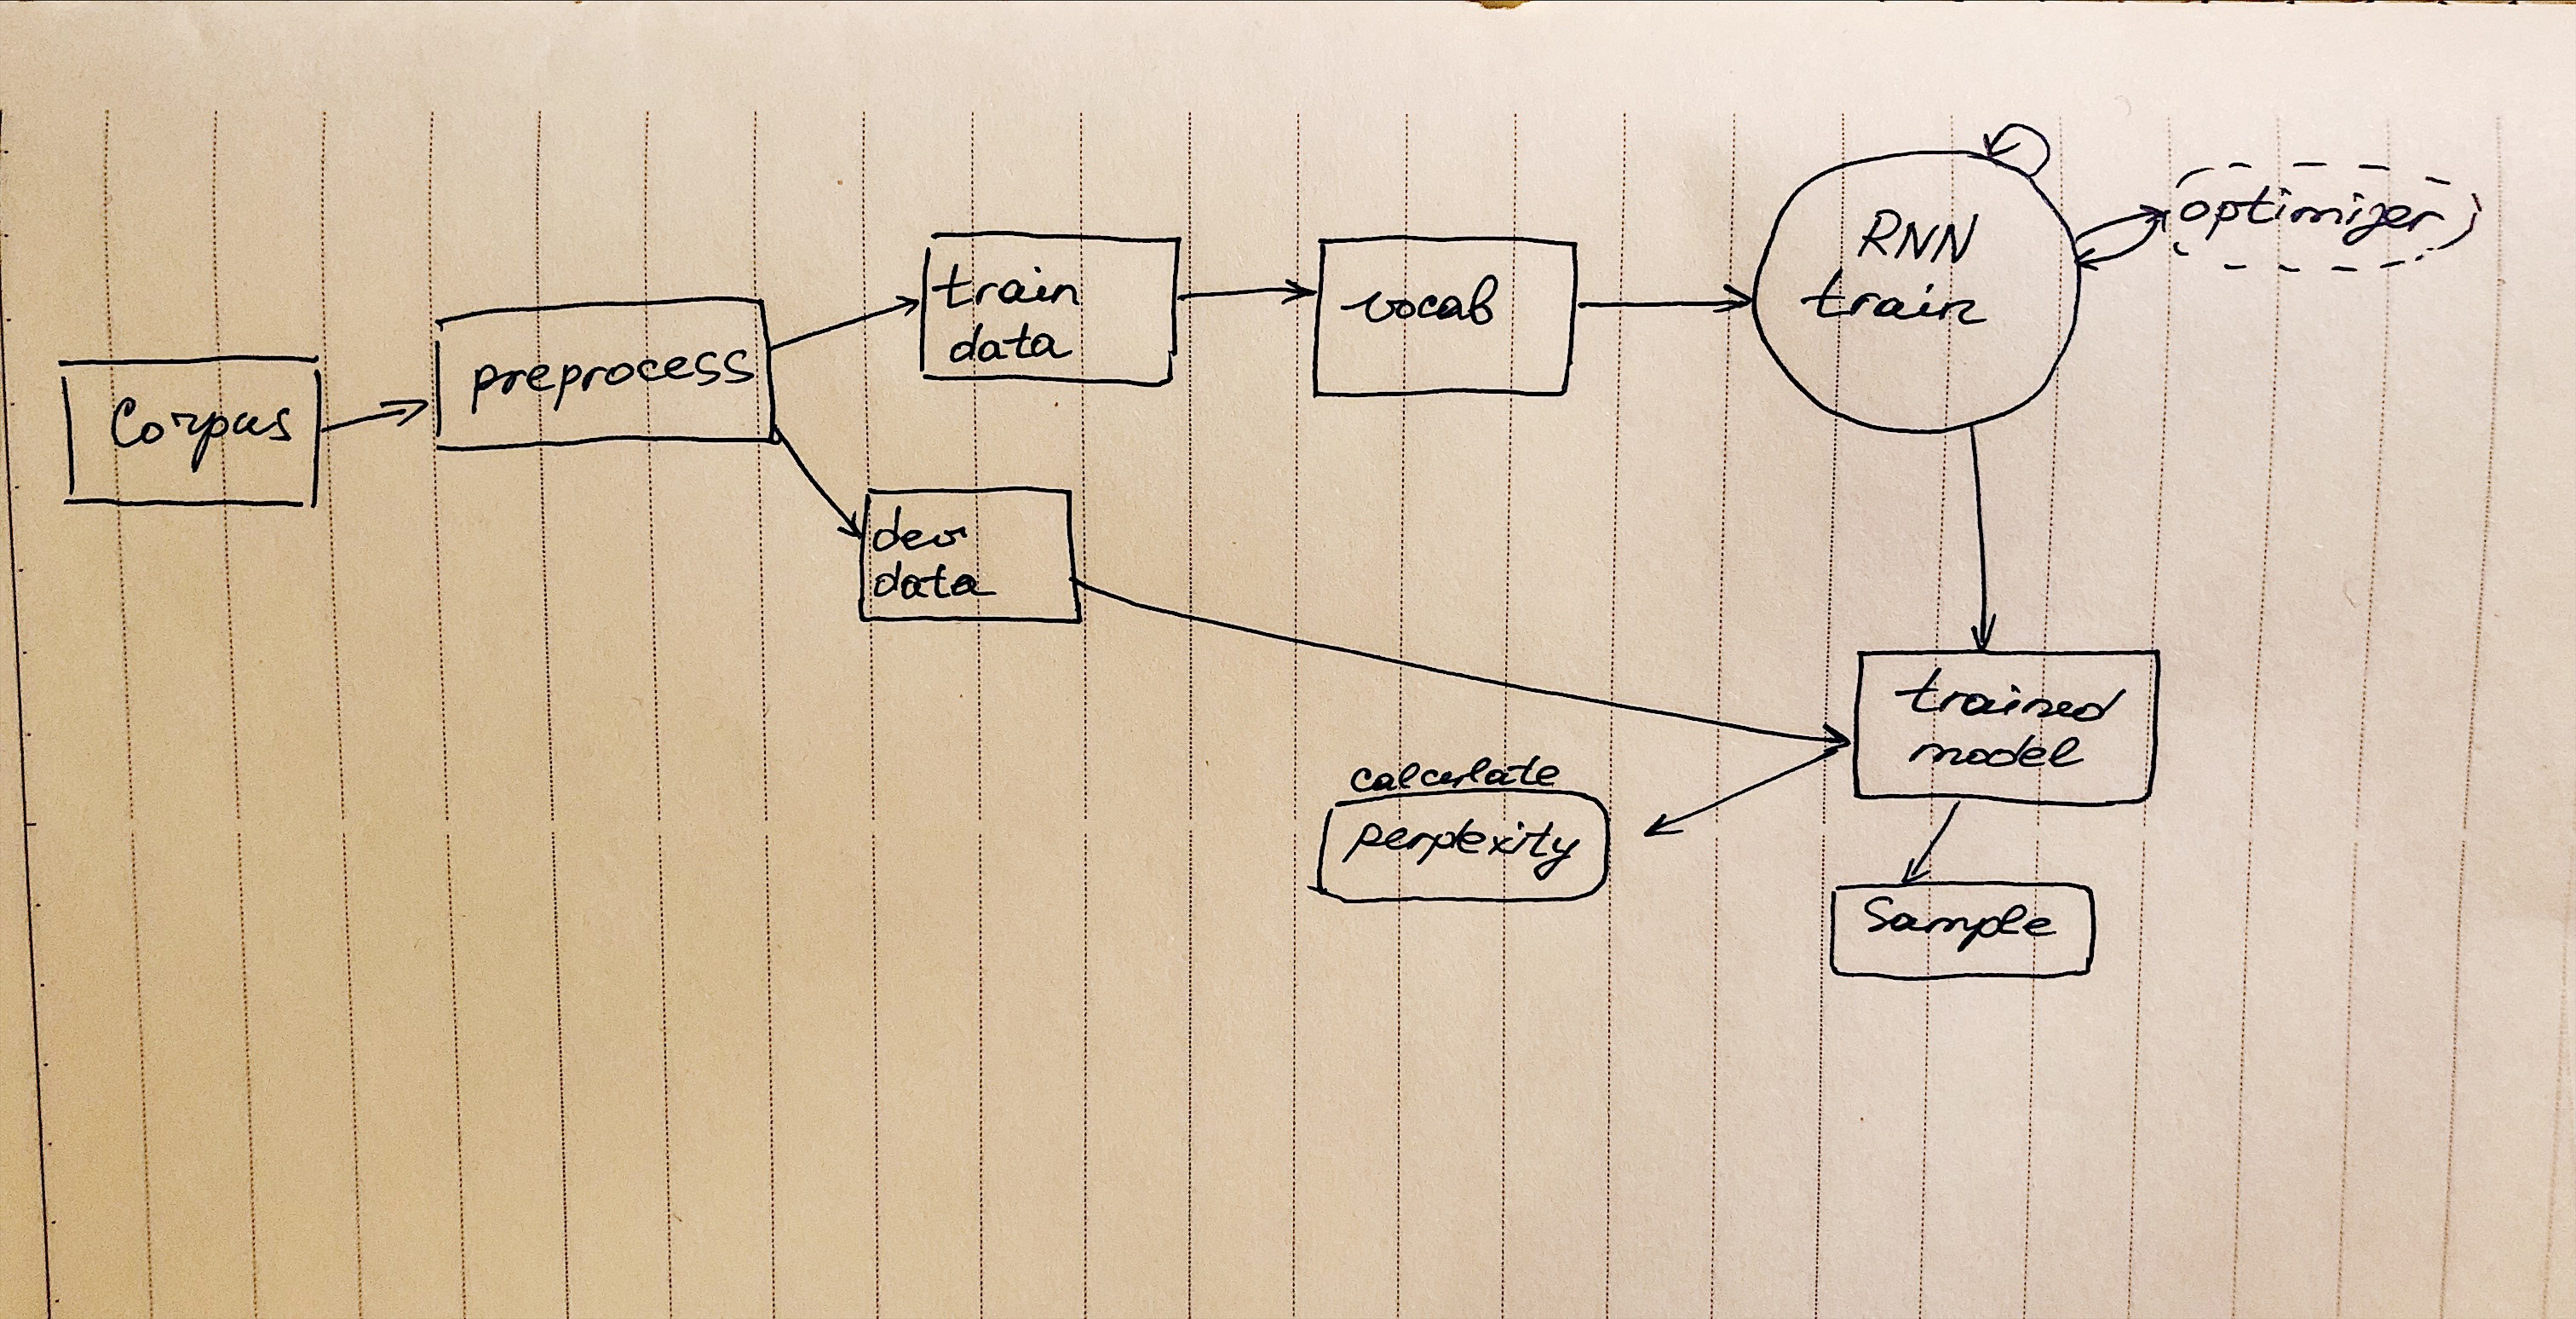 Corpus
preprocess
train
data
vocab
RNN
train
optimizer
dev
data
trained
model
calculate
perplexity
Sample